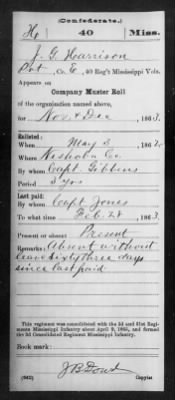 (Confederate.)
H 40 Miss.
J. G. Harrison
Pvt, Co. E, 40 Reg't Mississippi Vols.
Appears on
Company Muster Roll
of the organization named above,
for Nov & Dec, 1863.
Enlisted:
When May 3, 186
Where Neshoba Co
By whom Capt. Gibbens
Period 3 yrs
Last paid:
By whom Capt Jony
To what time Feb. 28, 1863.
Present or absent Present
Remarks: Absent without
leave sixty three days
since last paid
This regiment was consolidated with the 3d and 31st Regiments Mississippi Infantry about April 9, 1865, and formed the 3d Consolidated Regiment Mississippi Infantry.
Book mark:
J B Dowd
(642) Copyist.